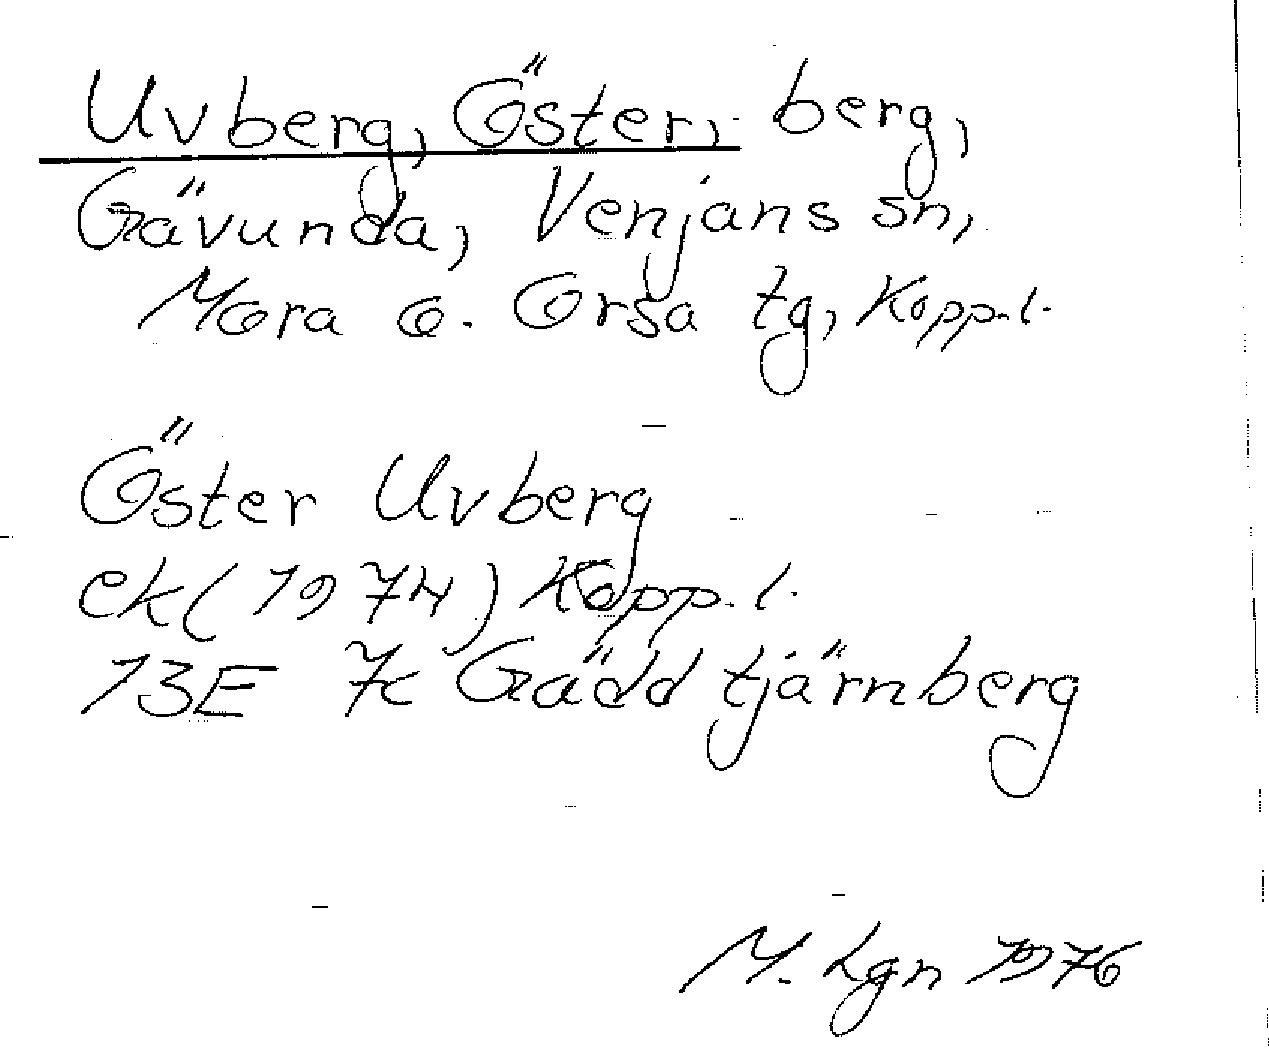 Uvberg, Öster, berg,
Gävunda, Venjans sn,
Mora o. Orsa tg, Kopp.l.
Öster Uvberg
ek (1974) Kopp.l.
13E 7c Gäddtjärnberg
M. Lgn 1976